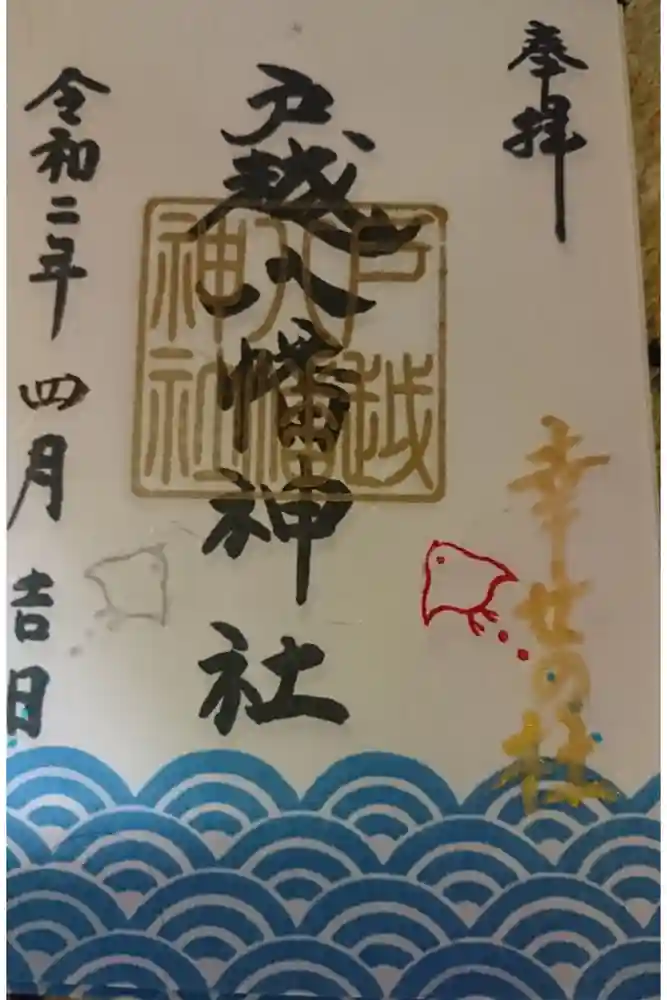 奉拝
幸せの社
戸越八幡神社
戸越
八幡
神社
令和二年 四月 吉日